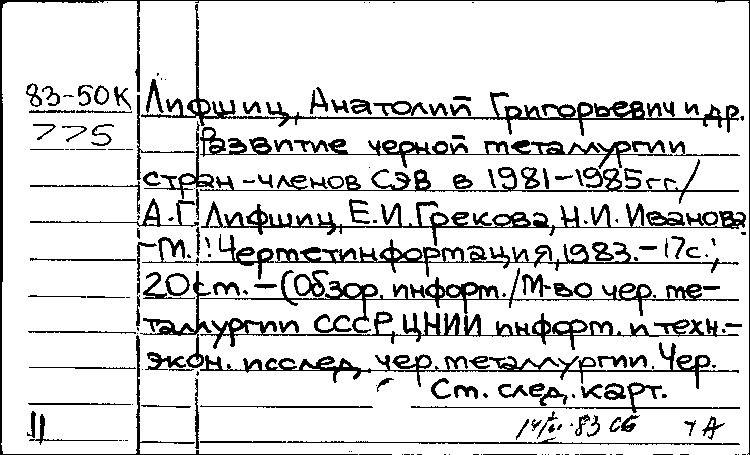 83-50К Лифшиц, Анатолий Григорьевич и др.
775 Развитие черной металлургии
стран-членов СЭВ в 1981-1985 гг. /
А.Г. Лифшиц, Е.И. Грекова, Н.И. Иванова
-М.: Черметинформация, 1983.-17с.;
20 см. - (Обзор. информ./М-во чер. ме-
таллургии СССР, ЦНИИ информ. и техн.-
экон. исслед. чер. металлургии. Чер.
См. след. карт.
11 83 СБ 7 А